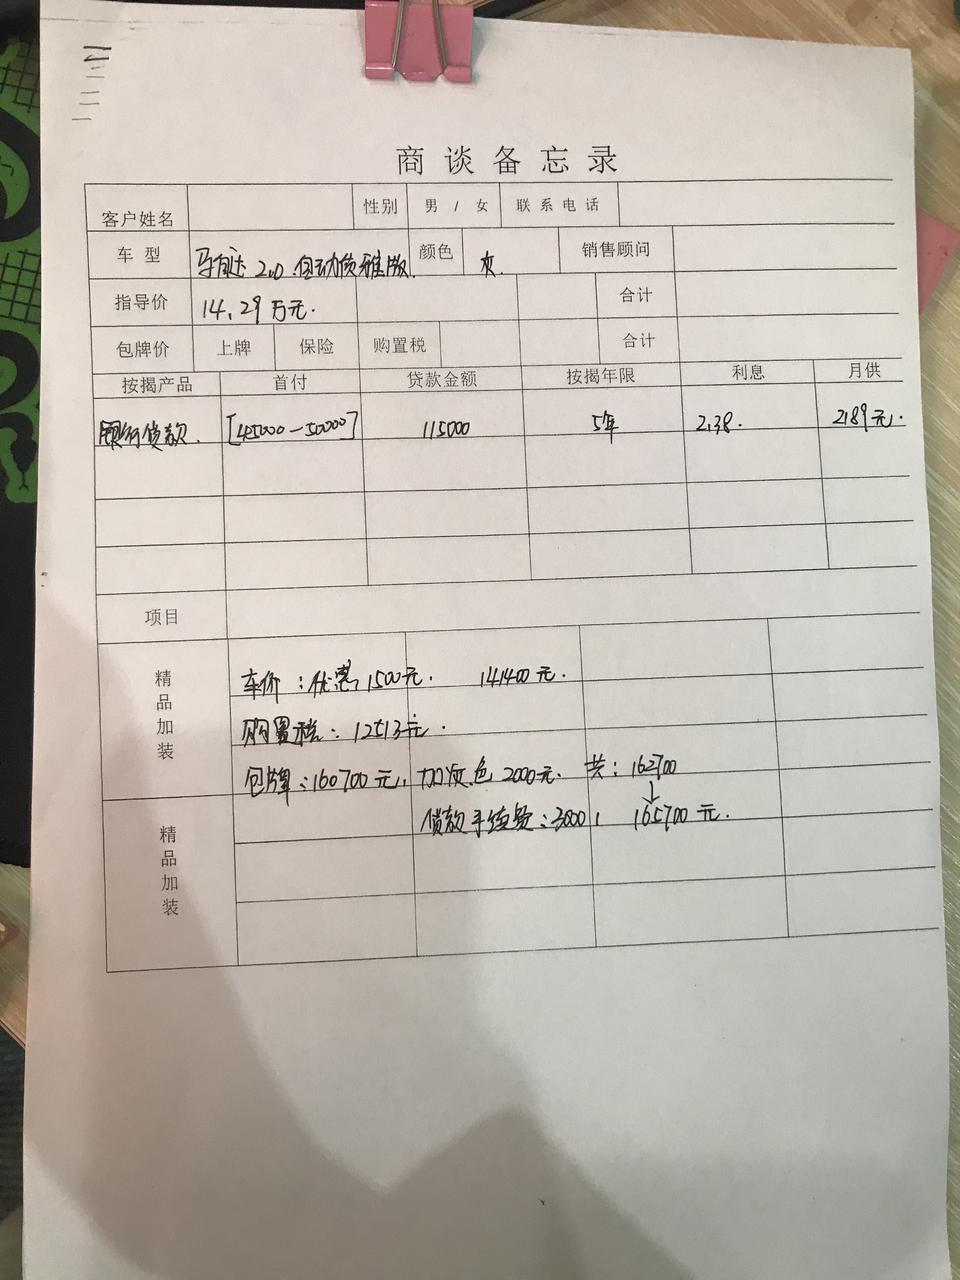 商谈备忘录
客户姓名 性别 男 / 女 联系电话
车 型 马自达 2.0 自动优雅版 颜色 灰. 销售顾问
指导价 14.29万元. 合计
包牌价 上牌 保险 购置税 合计
按揭产品 首付 贷款金额 按揭年限 利息 月供
银行贷款. [45000-50000] 115000 5年 2.38. 2189元.
项目
精品加装 车价:优惠1500元. 141400元.
购置税:12513元.
包牌:160700元, 加 色2000元. 共:162700
↓
精品加装 贷款手续费:3000, 165700元.